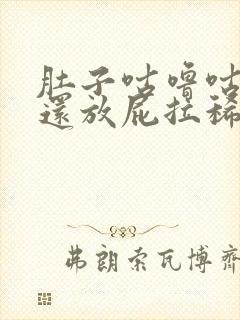 肚子咕嚕咕
還放屁拉稀
弗朗索瓦博齊